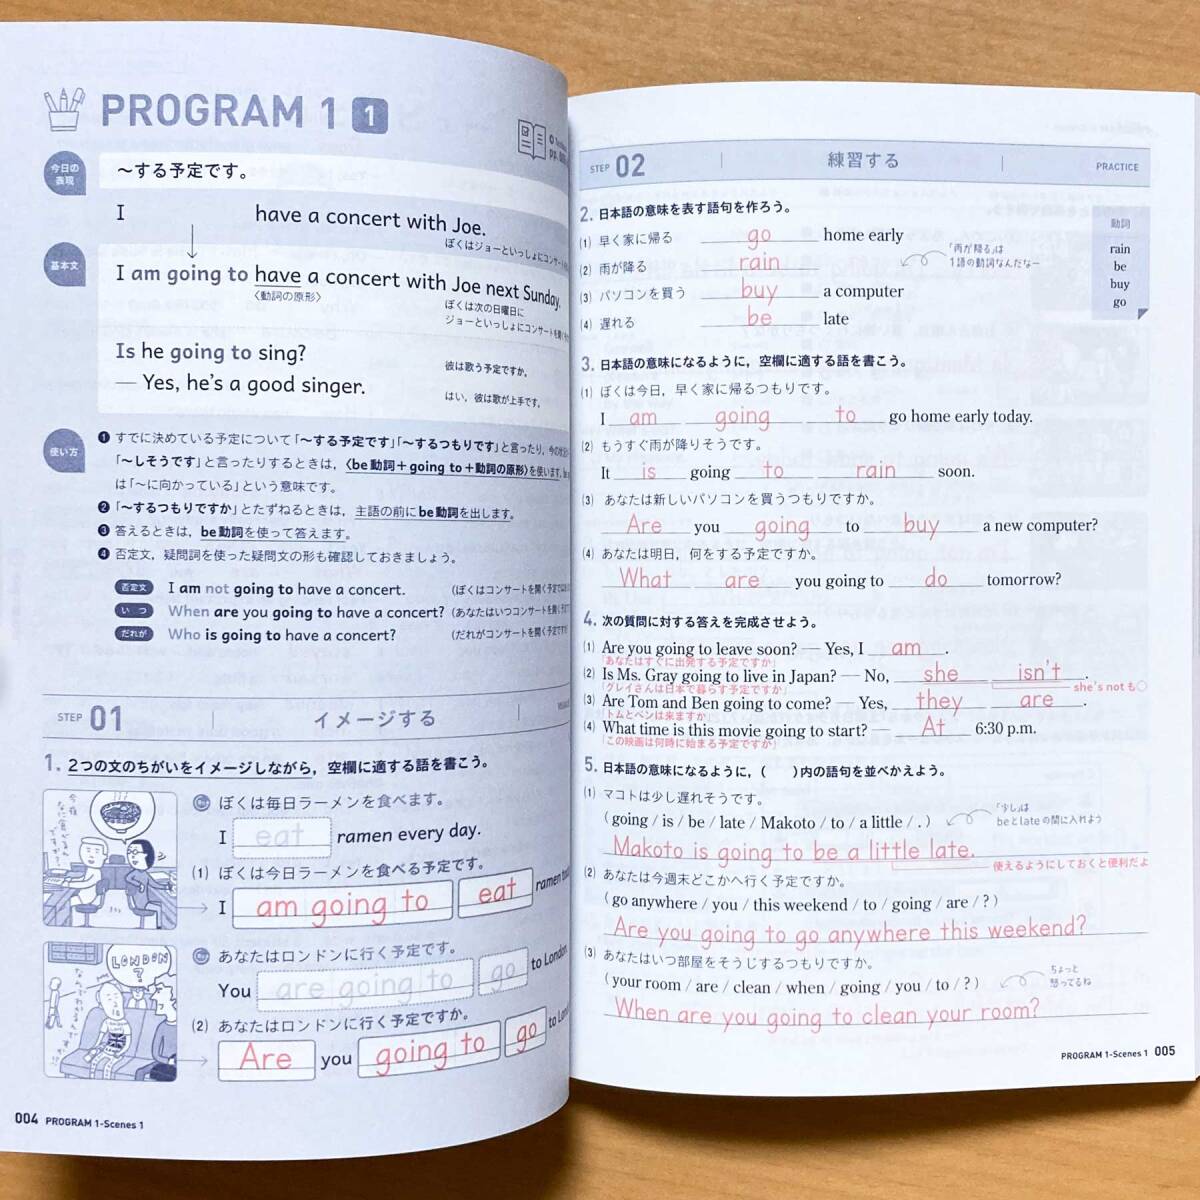 PROGRAM 1 1
今日の表現
〜する予定です。
I have a concert with Joe.
ぼくはジョーといっしょにコンサート
基本文
I am going to have a concert with Joe next Sunday.
〈動詞の原形〉
ぼくは次の日曜日に
ジョーといっしょにコンサートを開く
Is he going to sing?
彼は歌う予定ですか。
— Yes, he's a good singer.
はい，彼は歌が上手です。
使い方
❶ すでに決めている予定について「〜する予定です」「〜するつもりです」と言ったり，今の
「〜しそうです」と言ったりするときは，〈be動詞＋going to＋動詞の原形〉を使います。be
は「〜に向かっている」という意味です。
❷「〜するつもりですか」とたずねるときは，主語の前にbe動詞を出します。
❸ 答えるときは，be動詞を使って答えます。
❹ 否定文，疑問詞を使った疑問文の形も確認しておきましょう。
否定文 I am not going to have a concert. （ぼくはコンサートを開く予定では
いつ When are you going to have a concert? （あなたはいつコンサートを開く予定
だれが Who is going to have a concert? （だれがコンサートを開く予定
STEP 01 イメージする
1. 2つの文のちがいをイメージしながら，空欄に適する語を書こう。
ぼくは毎日ラーメンを食べます。
I eat ramen every day.
(1) ぼくは今日ラーメンを食べる予定です。
I am going to eat ramen
あなたはロンドンに行く予定です。
You are going to go to London.
LONDON?
(2) あなたはロンドンに行く予定ですか。
Are you going to go to
004 PROGRAM 1-Scenes 1
STEP 02 練習する PRACTICE
2. 日本語の意味を表す語句を作ろう。
(1) 早く家に帰る go home early
(2) 雨が降る rain
「雨が降る」は
1語の動詞なんだなー
(3) パソコンを買う buy a computer
(4) 遅れる be late
動詞
rain
be
buy
go
3. 日本語の意味になるように，空欄に適する語を書こう。
(1) ぼくは今日，早く家に帰るつもりです。
I am going to go home early today.
(2) もうすぐ雨が降りそうです。
It is going to rain soon.
(3) あなたは新しいパソコンを買うつもりですか。
Are you going to buy a new computer?
(4) あなたは明日，何をする予定ですか。
What are you going to do tomorrow?
4. 次の質問に対する答えを完成させよう。
(1) Are you going to leave soon? — Yes, I am.
「あなたはすぐに出発する予定ですか」
(2) Is Ms. Gray going to live in Japan? — No, she isn't.
「グレイさんは日本で暮らす予定ですか」
she's not も○
(3) Are Tom and Ben going to come? — Yes, they are.
「トムとベンは来ますか」
(4) What time is this movie going to start? — At 6:30 p.m.
「この映画は何時に始まる予定ですか」
5. 日本語の意味になるように，（ ）内の語句を並べかえよう。
(1) マコトは少し遅れそうです。
( going / is / be / late / Makoto / to / a little / . )
「少し」は
beとlateの間に入れよう
Makoto is going to be a little late.
使えるようにしておくと便利だよ
(2) あなたは今週末どこかへ行く予定ですか。
( go anywhere / you / this weekend / to / going / are / ? )
Are you going to go anywhere this weekend?
(3) あなたはいつ部屋をそうじするつもりですか。
( your room / are / clean / when / going / you / to / ? )
ちょっと
怒ってるね
When are you going to clean your room?
PROGRAM 1-Scenes 1 005